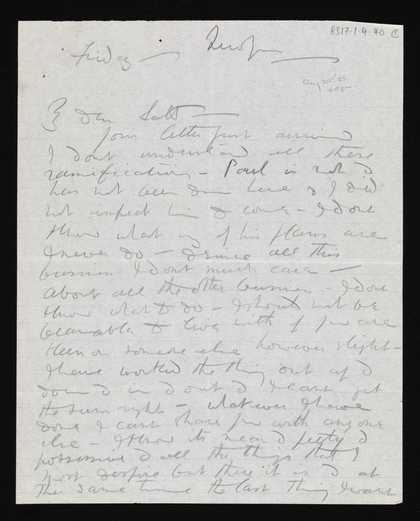 R317.1.9.40 C
Friday —
Aug
My Dear Sebb —
Your letter just arrived
I dont understand all these
ramifications — Paul is not &
has not been down here & I did
not expect him to come — I dont
know what any of his plans are
I never do — & since all this
business I dont much care —
About all the other business — I dont
know what to do — I should not be
able to live with if you are
keen on someone else however slight —
I have worked the thing out up &
down & in & out & I cant get
the sum right — whatever I have
done I cant share you with any one
else — I know its mean & petty &
possessive & all the things that I
most despise but there it is & at
the same time the last thing I want